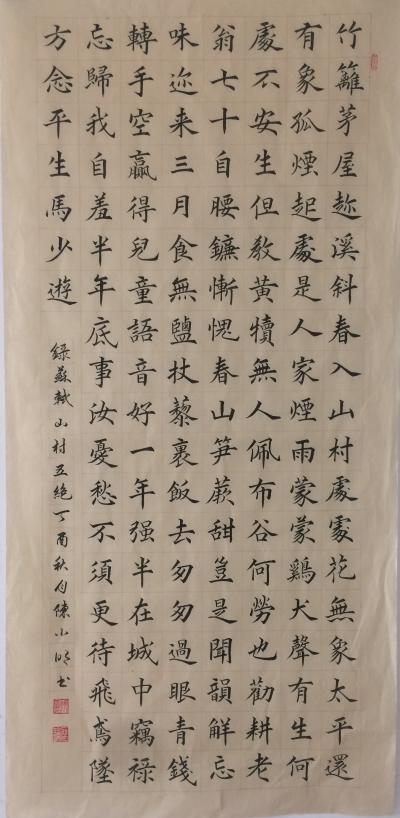 竹籬茅屋趂溪斜春入山村處處花無象太平還
有象孤煙起處是人家煙雨蒙蒙鷄犬聲有生何
處不安生但教黃犢無人佩布谷何勞也勸耕老
翁七十自腰鐮慚愧春山筍蕨甜豈是聞韻解忘
味迩来三月食無鹽杖藜裏飯去匆匆過眼青錢
轉手空贏得兒童語音好一年强半在城中竊祿
忘歸我自羞半年底事汝憂愁不須更待飛鳶墜
方念平生馬少遊
錄蘇軾山村五絕丁酉秋月陳小明书